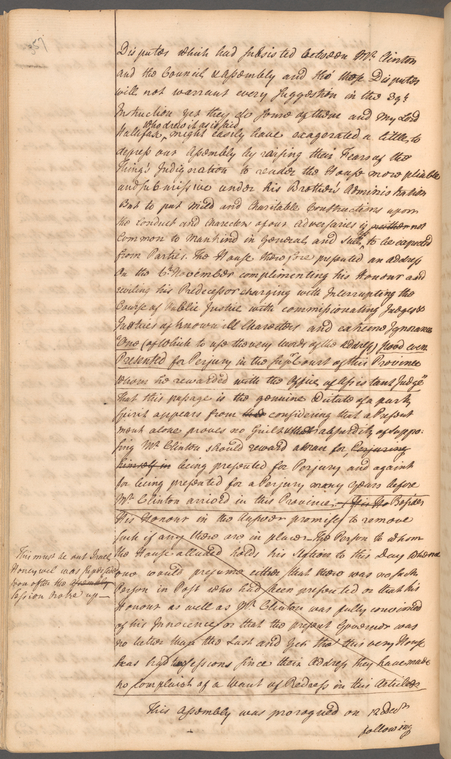 Disputes which had subsisted between Mr. Clinton
and the Council & Assembly and tho' those Disputes
will not warrant every suggestion in the 39th
Instruction yet they do some of them and my Lord
Hallifax, who drew it as is said might easily have exagerated a little to
depress our Assembly by raising their Fears of the
King's Indignation to render the House more pliable
and submissive under his Brother's Administration
But to put mild and charitable Constructions upon
the conduct and characters of our Adversaries is neither not
common to Mankind in General, and to be expected
from Parties. The House therefore presented an address
On the 6th November complimenting his Honour and
reviling his Predecessor charging with Interrupting the
Course of Public Justice with commissionating Judges &
Justices of known ill Characters and extreme Ignorance
"One (of which to use the very words of the address) stood even
Presented for Perjury in the Supr. Court of this Province
whom he rewarded with the Office of Assistant Judge"
That this passage is the genuine dictate of a party
Spirit appears from considering that a Present
ment alone proves no Guilt absurdity of suppo
sing Mr. Clinton should reward a man for
being presented for Perjury and again
for being presented for a Perjury many Years before
Mr. Clinton arrived in this Province. Besides
His Honour in the Answer promises to remove
such if any there are in place. The Person to whom
the House alluded holds his Station to this Day
one would presume either that there was no such
Person in Post who had been presented or that his
Honour as well as Mr. Clinton was fully convinced
of his Innocence or that the present Governor was
no better than the Last and yet tho' this very House
has had sessions since their address they have made
no complaint of a want of Redress in this Article
This must be out Israel
Honeywel was
soon after the
Session broke up—
This Assembly was prorogued on 12 Decr.
following